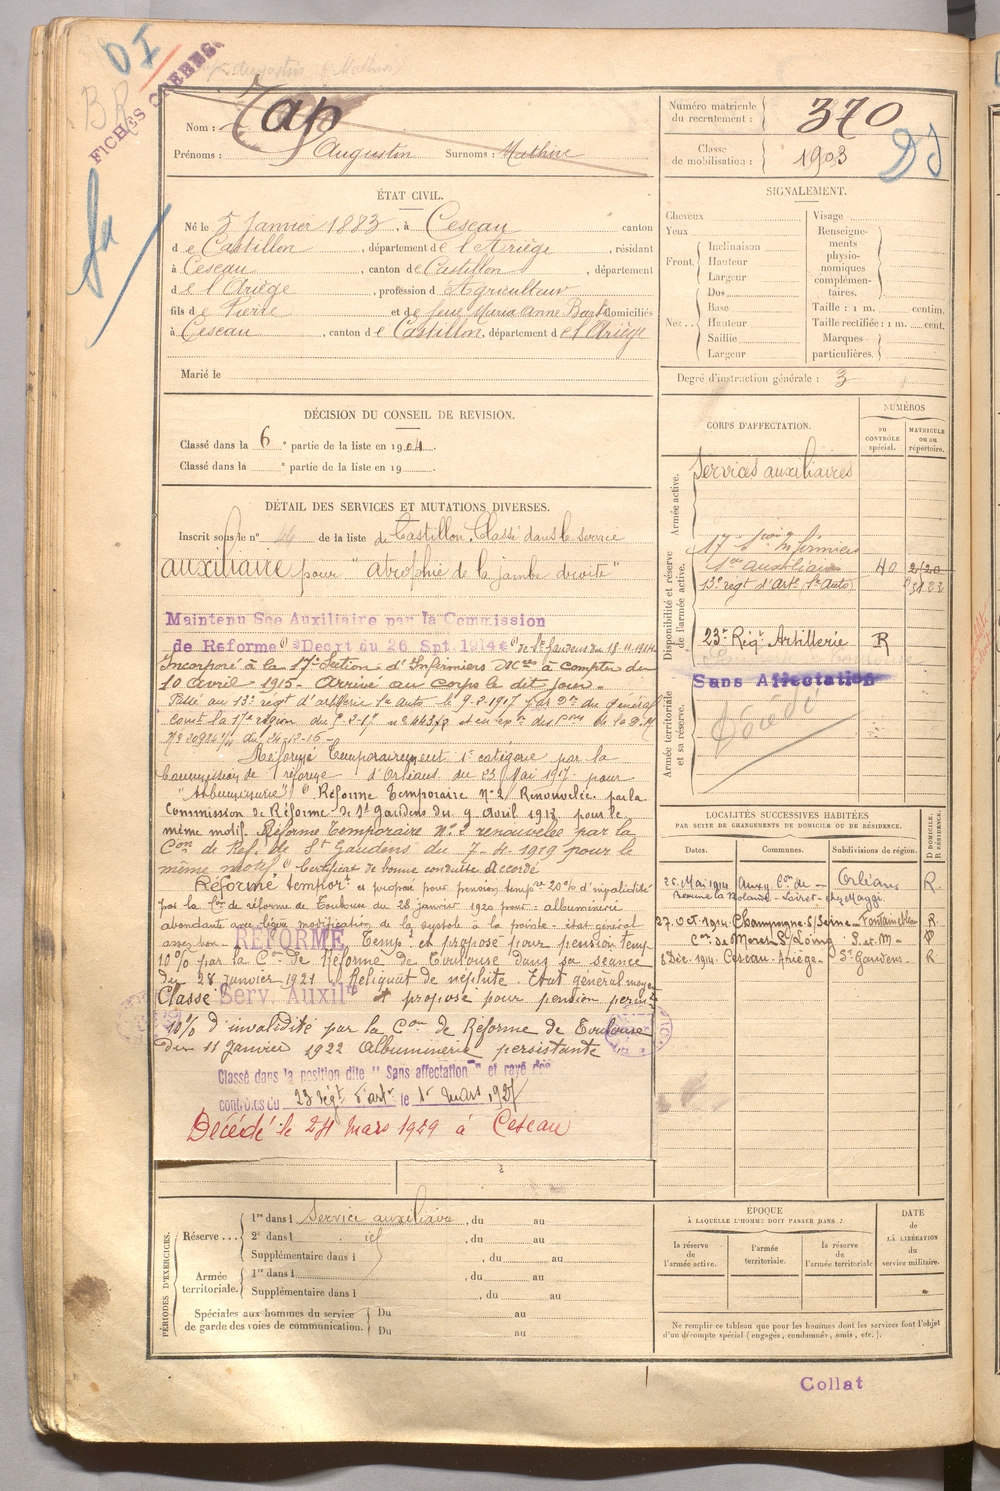 DI
BR
FICHES
Nom : Zap
Prénoms : Augustin Surnoms : Mathive
Numéro matricule du recrutement : 370
Classe de mobilisation : 1903
ÉTAT CIVIL.
Né le 5 Janvier 1883, à Cescau canton
de Castillon, département de l'Ariège, résidant
à Cescau, canton de Castillon, département
de l'Ariège, profession d'Agriculteur
fils de Pierre et de feue Maria Anne domiciliés
à Cescau, canton de Castillon, département de l'Ariège
Marié le
DÉCISION DU CONSEIL DE REVISION.
Classé dans la 6e partie de la liste en 1904.
Classé dans la e partie de la liste en 19
DÉTAIL DES SERVICES ET MUTATIONS DIVERSES.
Inscrit sous le n° 44 de la liste de Castillon. Classé dans le service
auxiliaire pour "atrophie de la jambe droite"
Maintenu Sce Auxiliaire par la Commission
de Reforme Decrt du 26 Spt 1914 de St Gaudens du 18.11.1914
Incorporé à la 17e Section d'Infirmiers Mres à compter du
10 avril 1915. Arrivé au corps le dit jour.
Passé au 13e régt d'artillerie 1re auto le 9-2-1917 par On du général
Comt la 17e région du
du 24-12-16
Réformé Temporairement 1e catégorie par la
Commission de réforme d'Orléans du 23 Mai 1917 pour
"Albuminurie" Réforme Temporaire N°2 Renouvelée par la
Commission de Réforme de St Gaudens du 9 Avril 1918 pour le
même motif. Réforme temporaire N°2 renouvelée par la
Con de Réf. de St Gaudens du 7-4-1919 pour le
même motif Certificat de bonne conduite Accordé
Réformé tempore et proposé pour pension tempre 20% d'invalidité
par la Con de réforme de Toulouse du 28 janvier 1920 pour : albuminerie
abondante avec légère modification de la systole à la pointe - état général
assez bon - REFORMÉ Temp. et proposé pour pension Temp
10% par la Con de Réforme de Toulouse dans sa séance
du 28 Janvier 1921 Reliquat de néphrite. Etat général moyen
Classé Serv. Auxil. et proposé pour pension perm
10% d'invalidité par la Con de Réforme de Toulouse
du 11 Janvier 1922 Albuminerie persistante
Classé dans la position dite "Sans affectation" et rayé des
contrôles du 23 régt d'artie le 1er mars 1927
Décédé le 24 Mars 1929 à Cescau
SIGNALEMENT.
Cheveux
Yeux
Front. Inclinaison
Hauteur
Largeur
Nez Dos
Base
Hauteur
Saillie
Largeur
Visage
Renseignements physionomiques complémentaires.
Taille : 1 m. centim.
Taille rectifiée : 1 m. cent.
Marques particulières.
Degré d'instruction générale : 3
CORPS D'AFFECTATION.
NUMÉROS
au CONTRÔLE spécial.
MATRICULE ou au répertoire.
Armée active.
Services auxiliaires
Disponibilité et réserve de l'armée active.
17e Son Infirmiers
auxiliaire 40
13e régt d'Artie (1re Auto)
23e Régt Artillerie R
Armée territoriale et sa réserve.
Sans Affectation
Décédé
LOCALITÉS SUCCESSIVES HABITÉES
PAR SUITE DE CHANGEMENTS DE DOMICILE OU DE RÉSIDENCE.
Dates. Communes. Subdivisions de région. D DOMICILE. R RÉSIDENCE.
25 Mai 1914 Auxy Con de Orléans R
Beaune la Rolande - Loiret - chez Maggi
27 Oct 1914 Champagne S/Seine Fontainebleau R
Con de Moret S/Loing S. et M.
8 Déc. 1914 Cescau - Ariège - St Gaudens R
PÉRIODES D'EXERCICES.
Réserve 1re dans l Service auxiliaire, du au
2e dans l id, du au
Supplémentaire dans l, du au
Armée territoriale. 1re dans l, du au
Supplémentaire dans l, du au
Spéciales aux hommes du service de garde des voies de communication. Du au
Du au
ÉPOQUE
À LAQUELLE L'HOMME DOIT PASSER DANS :
la réserve de l'armée active. l'armée territoriale. la réserve de l'armée territoriale
DATE de LA LIBÉRATION du service militaire.
Ne remplir ce tableau que pour les hommes dont les services font l'objet
d'un décompte spécial (engagés, condamnés, omis, etc.).
Collat